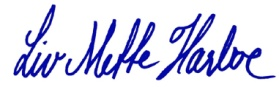 Liv Mette Harboe